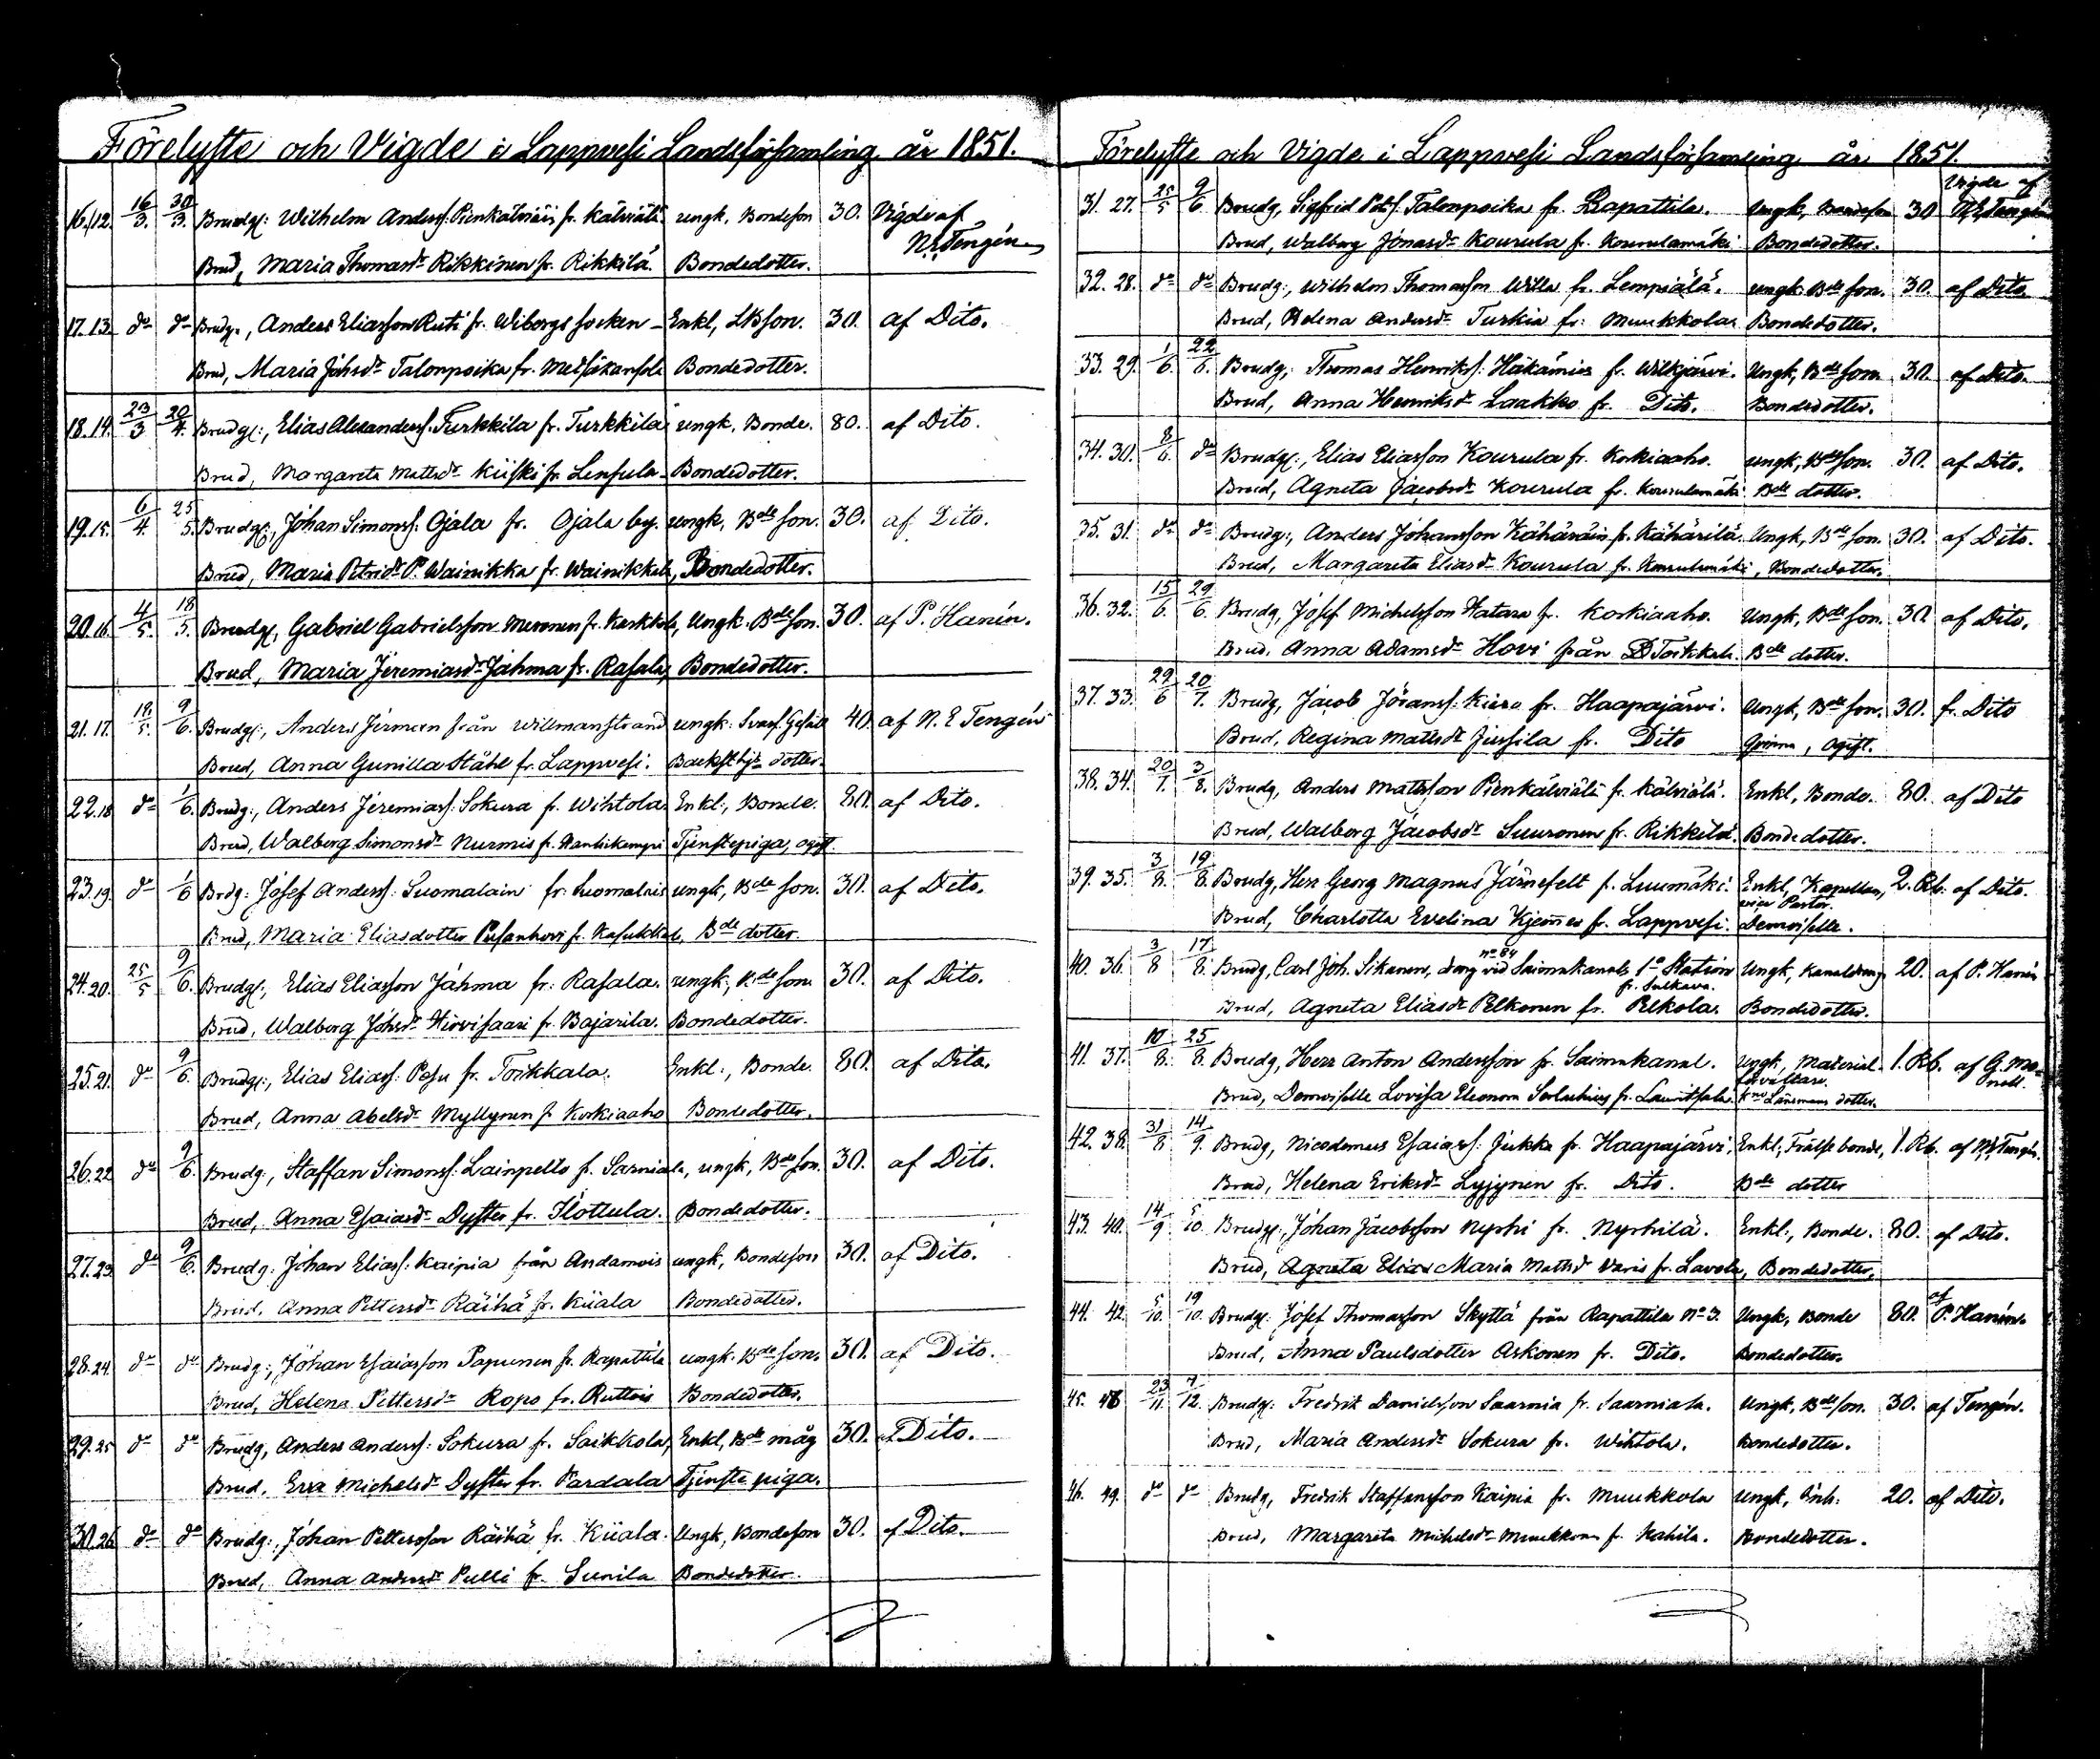 Förelyste och Vigde i Lappvesi Landsförsamling år 1851.
16. 12. 16/3. 30/3. Brudg: Wilhelm Anderss. Pienkälviäin fr. Kälviälä ungk. Bondeson 30. Vigde af N. E. Tengén
Brud, Maria Thomasdr Rikkinen fr. Rikkilä. Bondedotter.
17. 13. do do Brudg:, Anders Eliasson Ruti fr. Wiborgs socken Enkl, LBson. 30. af Dito.
Brud, Maria Johsdr Talonpoika fr. Bondedotter.
18. 14. 23/3 20/4. Brudg:, Elias Alexanderss. Turkkila fr. Turkkila ungk. Bonde. 80. af Dito.
Brud, Margareta Mattsdr Kiiski fr. Lensula Bondedotter.
19. 15. 6/4. 25/5. Brudg:, Johan Simonss: Ojala fr. Ojala by. ungk, Bde son. 30. af Dito.
Brud, Maria Petridr P. Wainikka fr. Wainikkala, Bondedotter.
20. 16. 4/5. 18/5. Brudg:, Gabriel Gabrielsson Muronen fr. Karkkola, Ungk. Bde son. 30. af P. Hanén.
Brud, Maria Jeremiasdr Jähma fr. Rasala, Bondedotter.
21. 17. 18/5. 9/6. Brudg:, Anders Jirman från Willmanstrand ungk. Svarf. Gesäll 40. af N. E. Tengén
Brud, Anna Gunilla Ståhl fr. Lappvesi. dotter.
22. 18 do 1/6. Brudg:, Anders Jeremiass: Sokura fr. Wihtola. Enkl:, Bonde. 80. af Dito.
Brud, Walborg Simonsdr Nurmis fr. Tjenstepiga, ogift.
23. 19. do 1/6 Brdg: Josef Anderss: Suomalain fr. Suomalais ungk, Bde son. 30. af Dito.
Brud, Maria Eliasdotter fr. Bde dotter.
24. 20. 25/5 9/6. Brudg:, Elias Eliasson Jähma fr: Rasala. ungk, Bde son. 30. af Dito.
Brud, Walborg Johsdr Hirvisaari fr. Bajarila. Bondedotter.
25. 21. do 9/6. Brudg:, Elias Eliass: Pesu fr. Toikkala. Enkl:, Bonde. 80. af Dito.
Brud, Anna Abelsdr Myllynen fr Korkiaaho Bondedotter.
26. 22 do 9/6. Brudg:, Staffan Simonss: Lainpelto f. Sarniala, ungk, Bde son. 30. af Dito.
Brud, Anna Esaiasdr Dyster fr. Hottula. Bondedotter.
27. 23 do 9/6. Brudg: Johan Eliass: Kaipia från Andamois ungk, Bondeson 30. af Dito.
Brud. Anna Pettersdr Räihä fr. Kiiala Bondedotter.
28. 24. do do Brudg:, Johan Esaiasson Papunen fr. Rapattila ungk. Bde son. 30. af Dito.
Brud, Helena Pettersdr Ropo fr. Ruttois Bondedotter.
29. 25 do do Brudg, Anders Anderss: Sokura fr. Saikkola, Enkl, Bde måg 30. af Dito.
Brud. Eva Michelsdr Dyster fr. Partala Tjenste piga.
30. 26 do do Brudg:, Johan Pettersson Räihä fr. Kiiala. Ungk, Bondeson 30. af Dito.
Brud, Anna Andersdr Pulli fr. Sunila Bondedotter.
Förelyste och Vigde i Lappvesi Landsförsamling år 1851.
31. 27. 25/5 9/6 Brudg, Sigfrid Petss. Talonpoika fr. Rapattila. Ungk, Bondeson 30 Vigde af N. E. Tengén
Brud, Walborg Jonasdr Kourula fr. Kourulamäki Bondedotter.
32. 28. do do Brudg:, Wilhelm Thomasson Willa fr. Lempiälä. ungk. Bde son. 30. af Dito.
Brud, Helena Andersdr Turkia fr: Muukkola. Bondedotter.
33. 29. 1/6. 22/6. Brudg:, Thomas Henrikss: Häkämies fr. Wilkjärvi. Ungk, Bde son. 30. af Dito.
Brud, Anna Henriksdr Laakko fr. Dito. Bondedotter.
34. 30. 8/6. do Brudg:, Elias Eliasson Kourula fr. Korkiaaho. ungk, Bde son. 30. af Dito.
Brud, Agneta Jacobsdr Kourula fr. Kourulamäki Bde dotter.
35. 31. do do Brudg:, Anders Johansson Kähäräin fr. Kähärilä. Ungk, Bde son. 30. af Dito.
Brud, Margareta Eliasdr Kourula fr. Kourulamäki, Bondedotter.
36. 32. 15/6. 29/6. Brudg, Josef Michelsson Hatara fr. Korkiaaho. Ungk, Bde son. 30 af Dito.
Brud. Anna Adamsdr Hovi från Toikkala. Bde dotter.
37. 33. 29/6 20/7. Brudg, Jacob Jöranss. Kiera fr. Haapajärvi. Ungk, Bde son. 30. fr. Dito
Brud, Regina Mattsdr Jussila fr. Dito Qvinna, ogift.
38. 34. 20/7. 3/8. Brudg, Anders Mattsson Pienkälviälä fr. Kälviälä. Enkl, Bonde. 80. af Dito
Brud, Walborg Jacobsdr Suuronen fr. Rikkilä. Bondedotter.
39. 35. 3/8. 19/8. Brudg, Herr Georg Magnus Järnefelt f. Luumäki. Enkl, Kapellan, 2. Rb. af Dito.
vice Pastor.
Brud, Charlotta Evelina Kjemes fr. Lappvesi. Demoiselle.
40. 36. 3/8 17/8. Brudg, Carl Joh. Sikanen, dreng vid Saimakanals 1a Station no 64 Ungk, Kanaldreng 20. af P. Hanén
fr. Sulkava.
Brud, Agneta Eliasdr Pelkonen fr. Pelkola. Bondedotter.
41. 37. 10/8. 25/8. Brudg, Herr Anton Andersson fr. Saimakanal. ungk, Material- 1. Rb. af G. Mo-
förvaltare. nell.
Brud, Demoiselle Lovisa Eleonora fr. Lauritsala. Länsmans dotter.
42. 38. 31/8 14/9. Brudg, Nicodemus Esaiass: Jukka fr. Haapajärvi. Enkl, Frälse bonde, 1. Rb. af N. E. Tengén.
Brud, Helena Eriksdr Lyjynen fr. Dito. Bde dotter
43. 40. 14/9 5/10. Brudg:, Johan Jacobsson Nyrhi fr. Nyrhilä. Enkl:, Bonde. 80. af Dito.
Brud, Agneta Elias Maria Mattsdr Varis fr. Lavola, Bondedotter.
44. 42. 5/10. 19/10. Brudg: Josef Thomasson Skyttä från Rapattila No 3. Ungk, Bonde 80. af P. Hanén.
Brud, Anna Paulsdotter Askonen fr. Dito. Bondedotter.
45. 48 23/11. 7/12. Brudg: Fredrik Danielsson Saarnia fr. Saarniala. Ungk, Bde son. 30. af Tengén.
Brud, Maria Andersdr Sokura fr. Wihtola. Bondedotter.
46. 49. do do Brudg, Fredrik Staffansson Kaipia fr. Muukkola Ungk, Inh. 20. af Dito.
Brud, Margareta Michelsdr Muukkonen f. Kahila. Bondedotter.